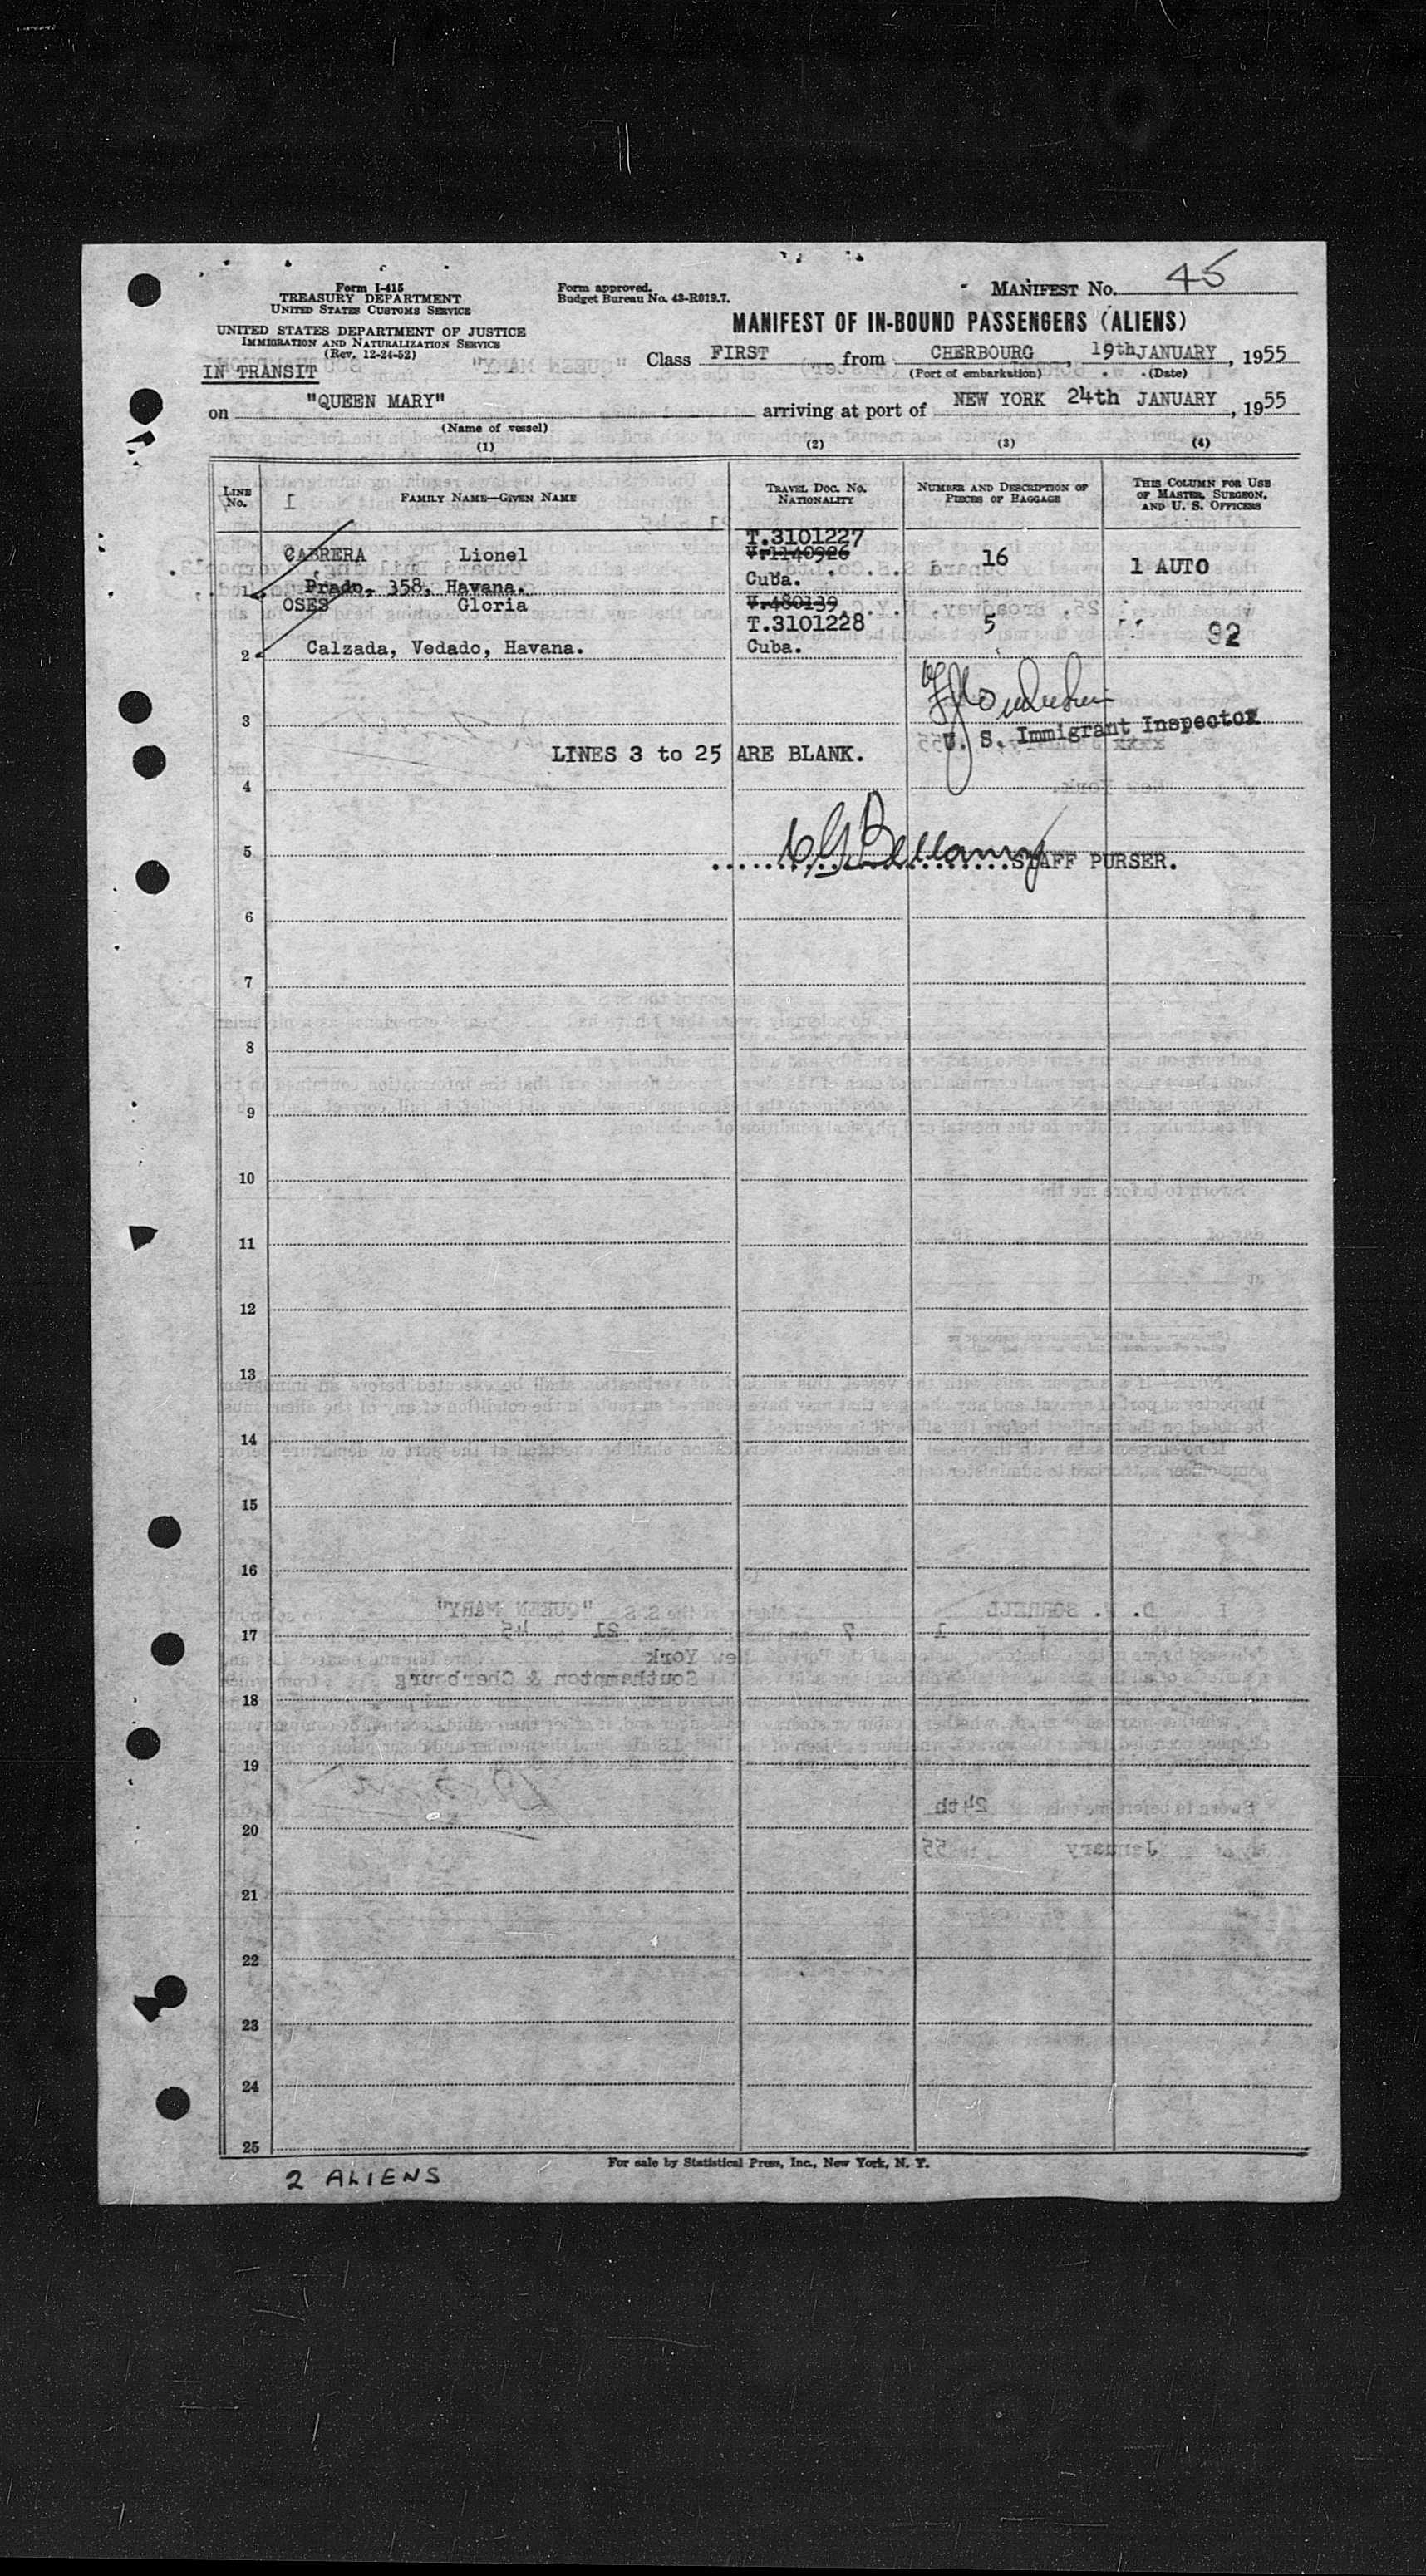 Form I-415
TREASURY DEPARTMENT
UNITED STATES CUSTOMS SERVICE
UNITED STATES DEPARTMENT OF JUSTICE
IMMIGRATION AND NATURALIZATION SERVICE
(Rev. 12-24-52)
IN TRANSIT
Form approved.
Budget Bureau No. 43-R019.7.
MANIFEST No. 45
MANIFEST OF IN-BOUND PASSENGERS (ALIENS)
Class FIRST from CHERBOURG, 19th JANUARY, 1955
(Port of embarkation) (Date)
on "QUEEN MARY" arriving at port of NEW YORK 24th JANUARY, 1955
(Name of vessel)
(1) (2) (3) (4)
LINE No. FAMILY NAME—GIVEN NAME TRAVEL DOC. No. NATIONALITY NUMBER AND DESCRIPTION OF PIECES OF BAGGAGE THIS COLUMN FOR USE OF MASTER, SURGEON, AND U. S. OFFICERS
T.3101227
CABRERA Lionel V.1140926 16 1 AUTO
Cuba.
1 Prado. 358, Havana.
OSES Gloria V.480139
T.3101228 5 92
2 Calzada, Vedado, Havana. Cuba.
3
U. S. Immigrant Inspector
LINES 3 to 25 ARE BLANK.
4
5 Bellamy STAFF PURSER.
6
7
8
9
10
11
12
13
14
15
16
17
18
19
20
21
22
23
24
25
For sale by Statistical Press, Inc., New York, N. Y.
2 ALIENS